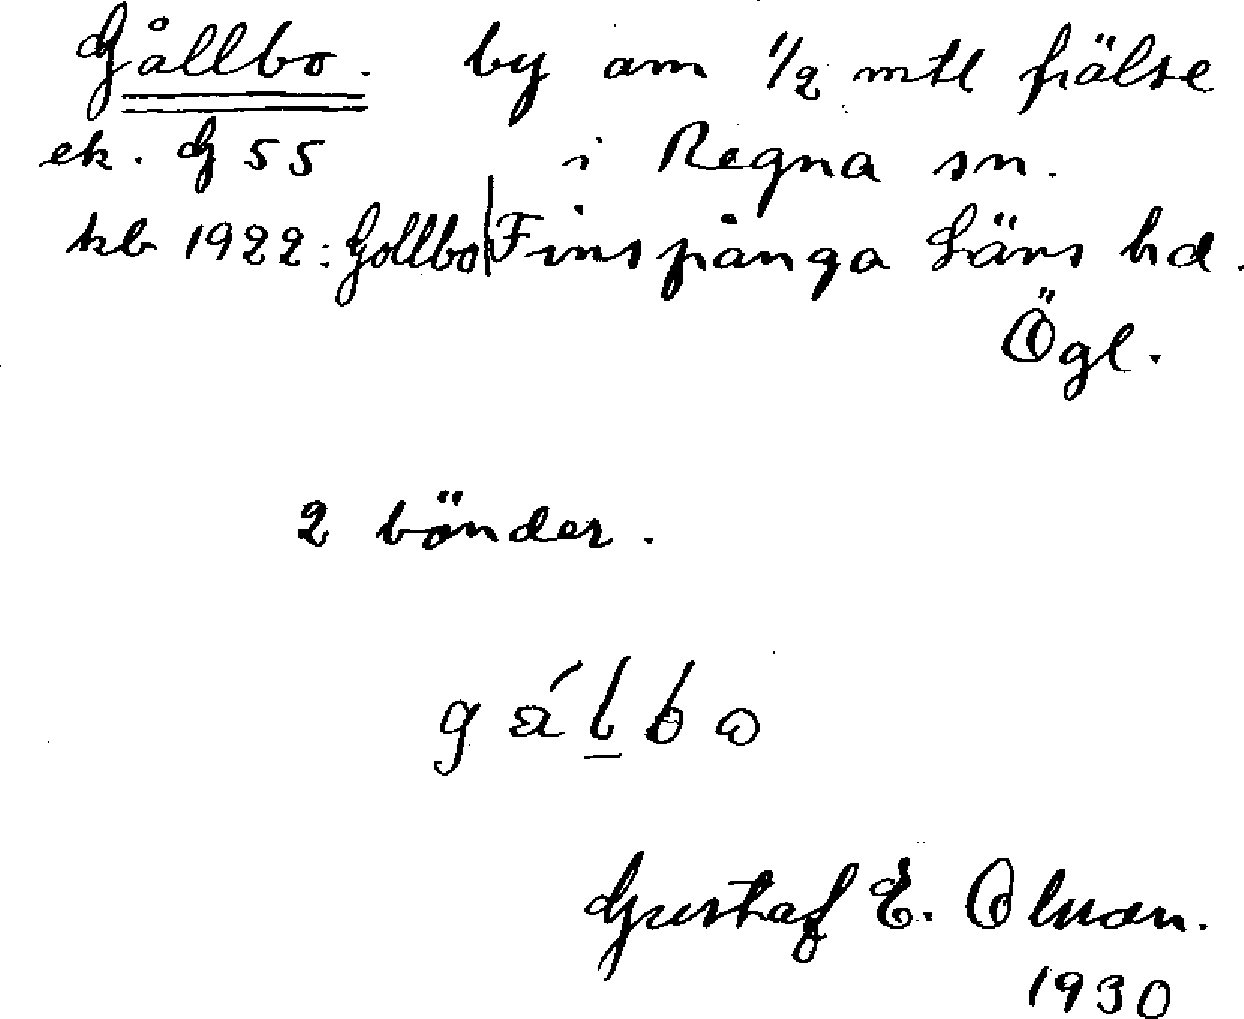 Gållbo. by om 1/2 mtl frälse
ek. G 55 i Regna sn.
kb 1922: Gollbo Finspånga Läns hd.
Ögl.
2 bönder.
Gustaf E. Olman.
1930